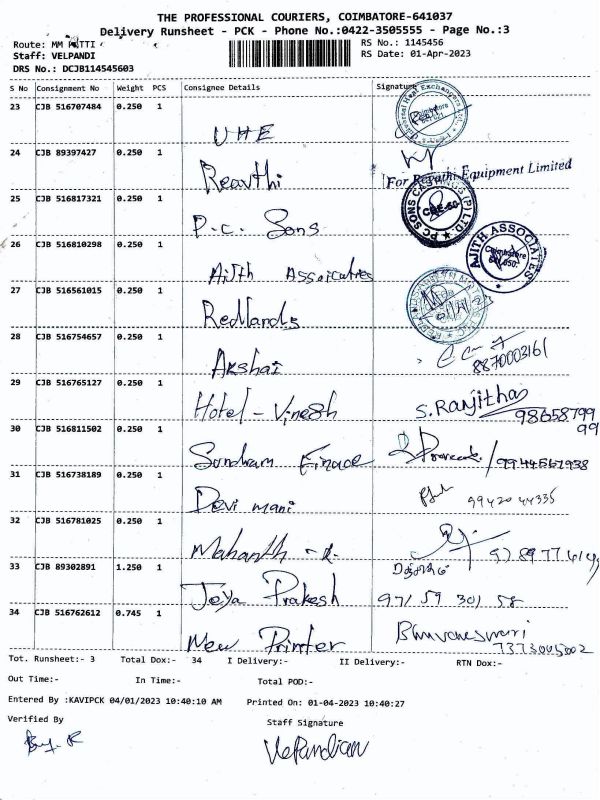 THE PROFESSIONAL COURIERS, COIMBATORE-641037
Delivery Runsheet - PCK - Phone No.:0422-3505555 - Page No.:3
Route: MM PATTI
RS No.: 1145456
Staff: VELPANDI
RS Date: 01-Apr-2023
DRS No.: DCJB114545603
S No Consignment No Weight PCS Consignee Details Signature
23 CJB 516707484 0.250 1
UHE
24 CJB 89397427 0.250 1
Reavthi
For Revathi Equipment Limited
25 CJB 516817321 0.250 1
P.c. Sons
PC SONS CASTINGS (P) LTD.
CBE-50
26 CJB 516810298 0.250 1
Ajith Assoicatries
AJITH ASSOCIATES
Coimbatore
27 CJB 516561015 0.250 1
Redlands
28 CJB 516754657 0.250 1
Akshai
8870003161
29 CJB 516765127 0.250 1
Hotel - Vinesh
S. Ranjitha
98658799
99
30 CJB 516811502 0.250 1
Sundram Finace
9944567938
31 CJB 516738189 0.250 1
Devi mani
99420 44335
32 CJB 516781025 0.250 1
Mahanth - R.
33 CJB 89302891 1.250 1
Jeya Prakesh
97159 301 58
34 CJB 516762612 0.745 1
New Printer
Bhuvaneswari
7373005002
Tot. Runsheet:- 3 Total Dox:- 34 I Delivery:- II Delivery:- RTN Dox:-
Out Time:- In Time:- Total POD:-
Entered By :KAVIPCK 04/01/2023 10:40:10 AM Printed On: 01-04-2023 10:40:27
Verified By
Staff Signature
VelPandian